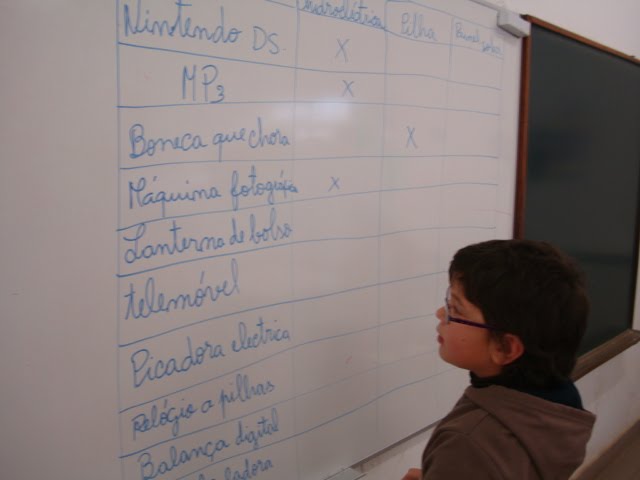 Hidroeléctrica Pilha Painel solar
Nintendo DS X
MP3 X
Boneca que chora X
Máquina fotográfica X
Lanterna de bolso
telemóvel
Picadora electrica
Relógio a pilhas
Balança digital